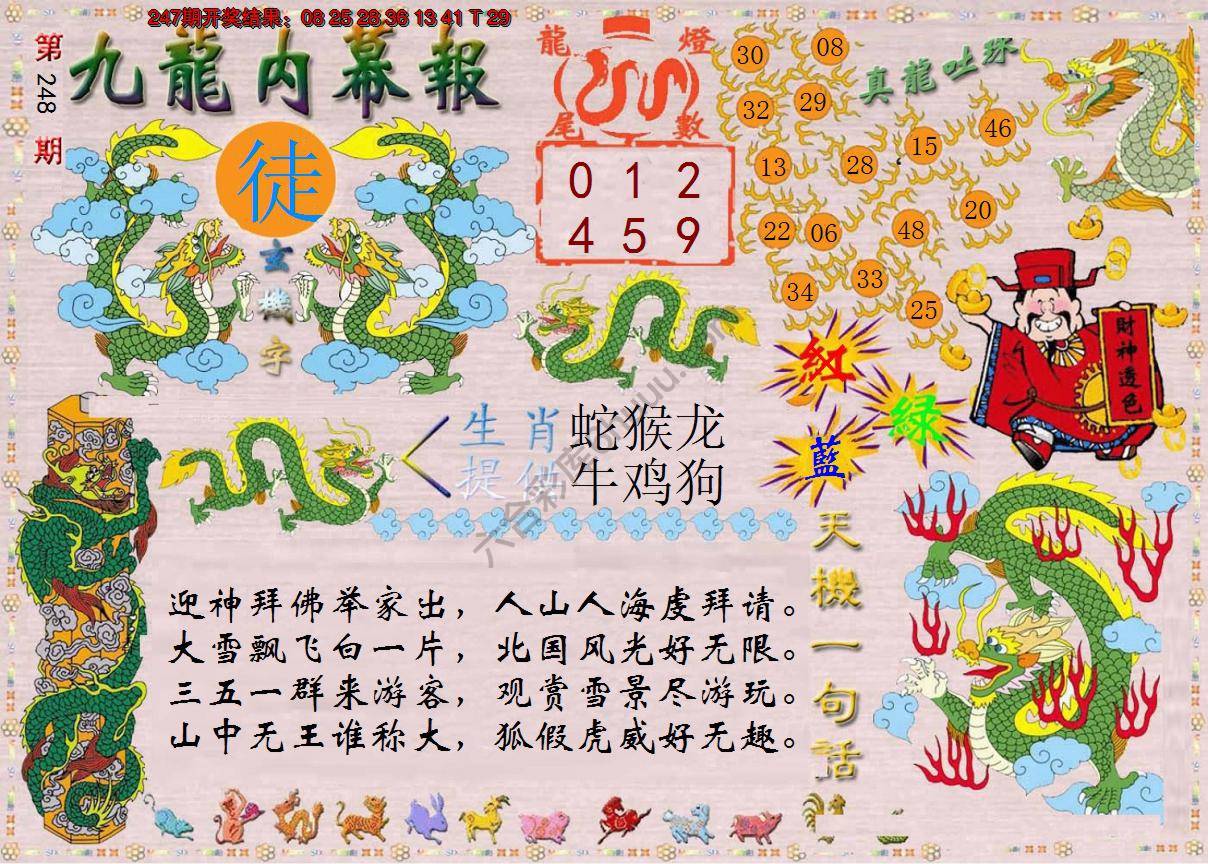 247期开奖结果：08 25 28 36 13 41 T 29
第248期
九龍内幕報
徒
玄機字
龍燈
尾數
0 1 2
4 5 9
真龍吐珠
30 08
32 29
13 28 15 46
22 06 48 20
34 33 25
財神透色
紅
綠
藍
生肖 蛇猴龙
提供 牛鸡狗
天機一句話
迎神拜佛举家出，人山人海虔拜请。
大雪飘飞白一片，北国风光好无限。
三五一群来游客，观赏雪景尽游玩。
山中无王谁称大，狐假虎威好无趣。